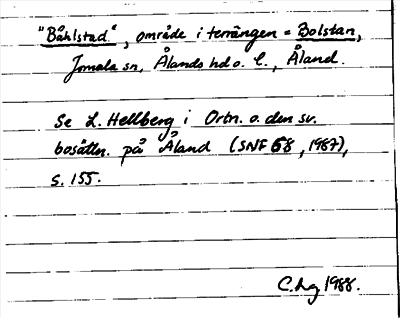 "Båhlstad", område i terrängen = Bolstan,
Jomala sn, Ålands hd o. l., Åland.
Se L. Hellberg i Ortn. o. den sv.
bosättn. på Åland (SNF 68, 1987),
s. 155.
C. hg 1988.